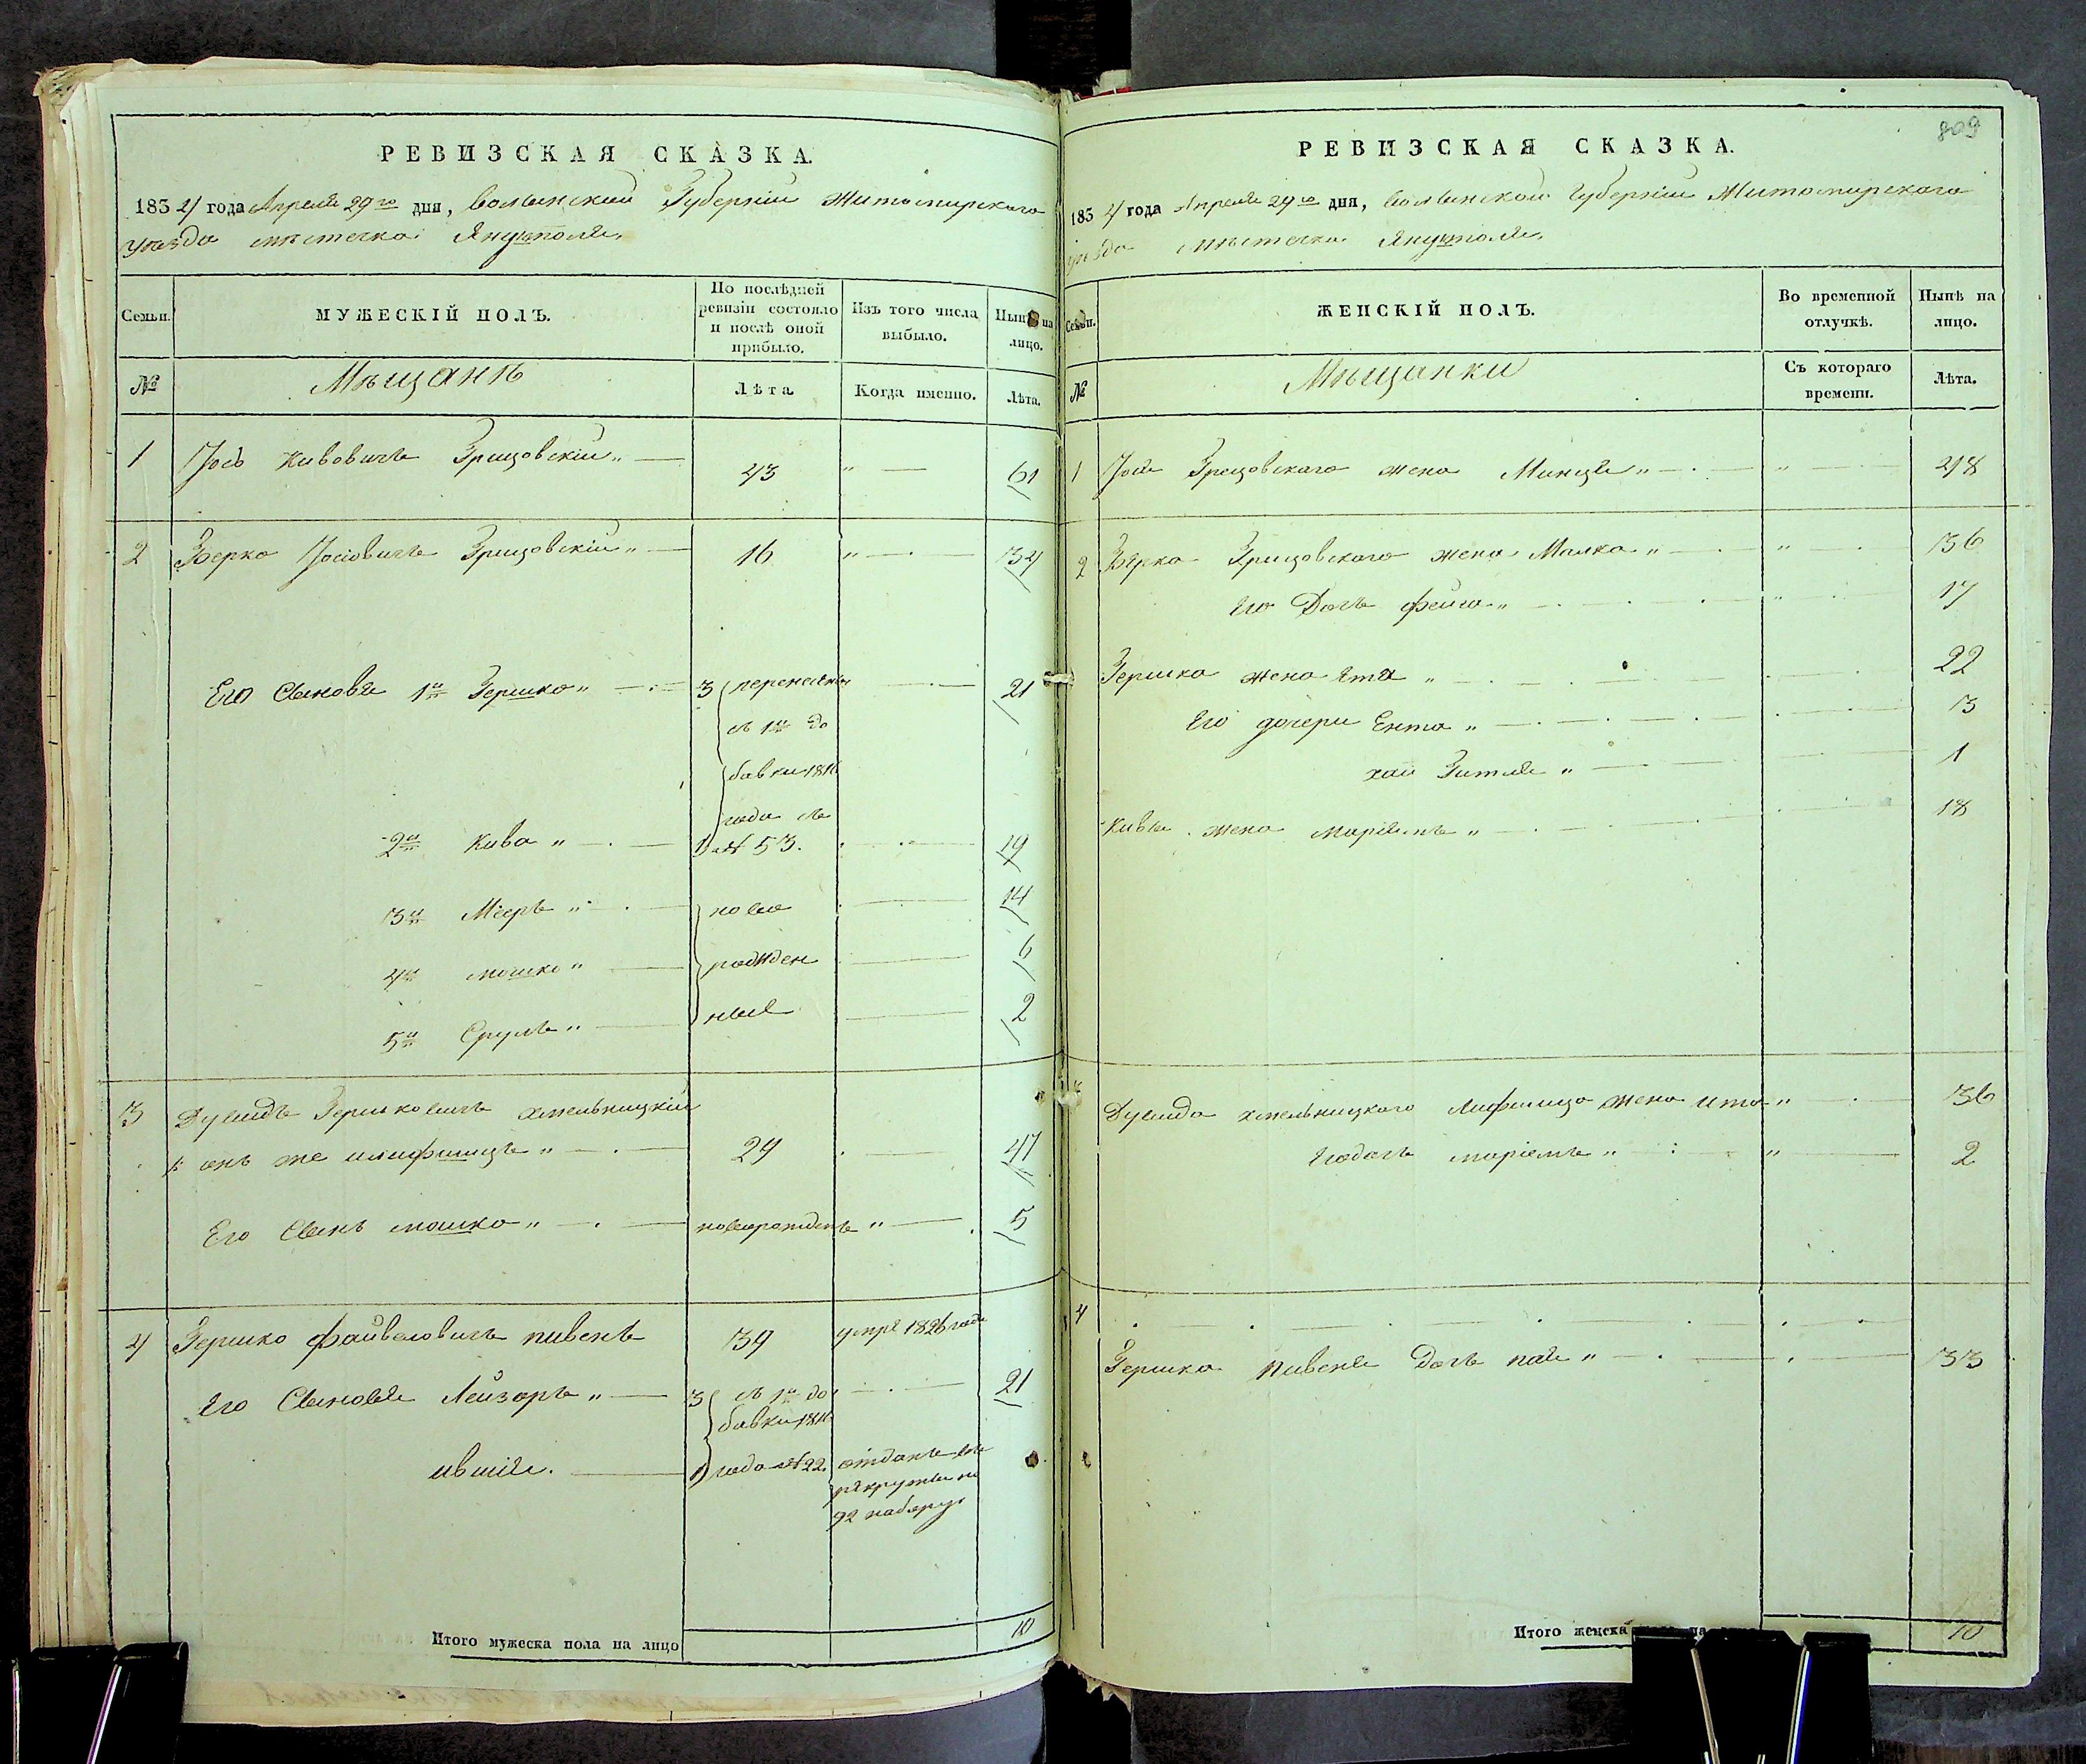 РЕВИЗСКАЯ СКАЗКА.
1834 года Апреля 29го дня, Волынской Губернии Житомирского
уезда местечка Янушполя
Семьи. МУЖЕСКІЙ ПОЛЪ. По послѣдней ревизіи состояло и послѣ оной прибыло. Изъ того числа выбыло. Нынѣ на лицо.
№ Мѣщанѣ Лѣта Когда именно. Лѣта.
1 Іось Кивовичь Грицовскій 43 61
2 Берко Іосіовичь Грицовскій 16 34
Его Сыновья 1й Гершко 3 перенесены 21
съ 1й до
бавки 1816
года съ
2й Кива 1 № 53. 19
3й Мееръ ново 14
4й Мошко рожден 6
5й Сруль ные 2
3 Дувидъ Гершковичь Хмельницкій
онъ же Лифшицъ 29 47
Его Сынъ Мошко новорожденъ 5
4 Гершко Файвеловичь Пивень 39 умре 1826 года
Его Сыновья Лейзоръ 3 съ 1й до 21
бавки 1816
Ившія. 1 года № 22. отданъ въ
рекруты по
92 набору
Итого мужеска пола на лицо 10
809
РЕВИЗСКАЯ СКАЗКА.
1834 года Апреля 29го дня, Волынской Губерніи Житомирского
уезда местечка Янушполя
Семьи. ЖЕНСКІЙ ПОЛЪ. Во временной отлучкѣ. Нынѣ на лицо.
№ Мѣщанки Съ котораго времени. Лѣта.
1 Іося Грицовскаго жена Минця 48
2 Берка Грицовскаго жена Малка 36
Его Дочь Фейга 17
Гершка жена Ета 22
Его дочери Ента 3
Хая Гитля 1
Кивы жена Маріемъ 18
Дувида Хмельницкого Лифшица жена Ита 36
Его дочь Маріемъ 2
4
Гершка Пивеня Дочь Пая 33
Итого женска 10